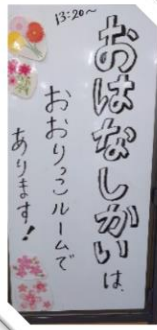 13:20~
おはなしかいは、
おおりっこルームで
あります!